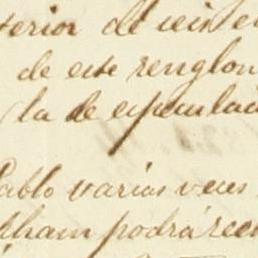 terior de
de este renglon
la de especulaci
Pablo varias veces
ham podrá